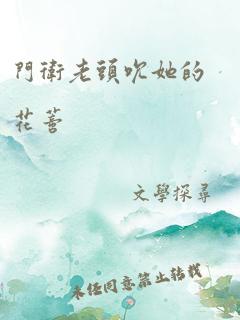 門衛老頭吹她的
花蓄
文學探尋
未經同意禁止轉載